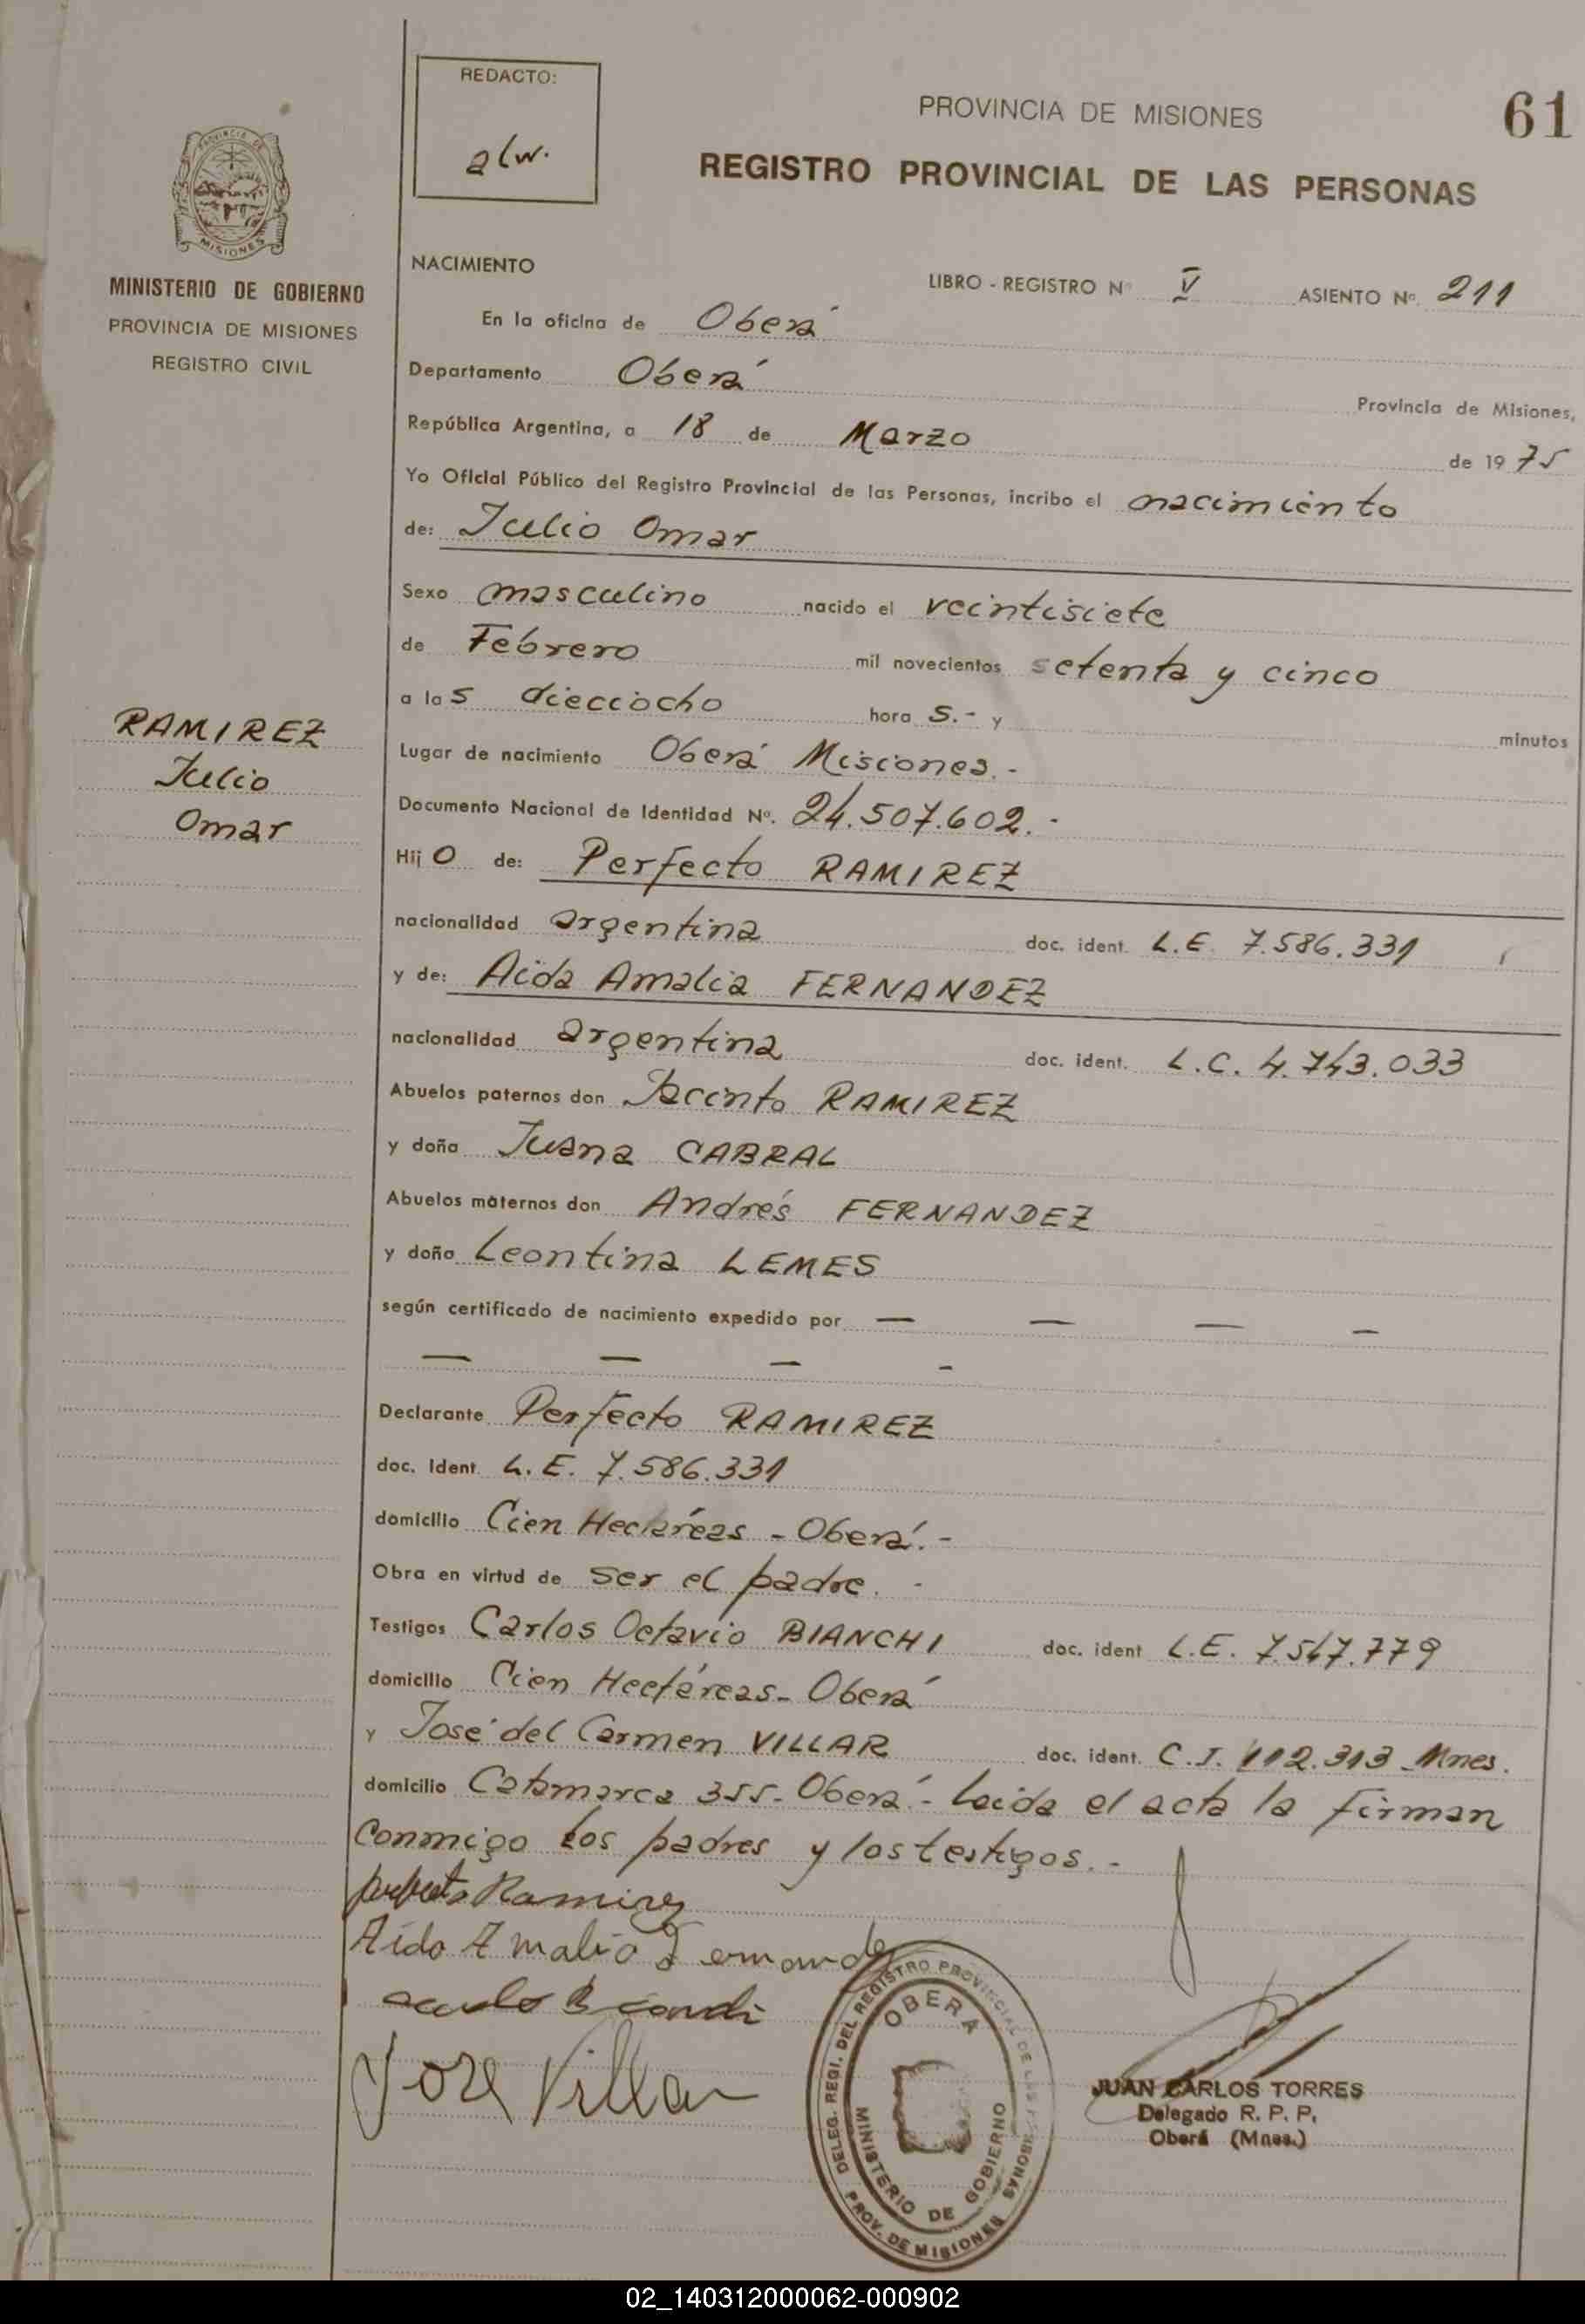 REDACTO:
alw.
PROVINCIA DE MISIONES
61
REGISTRO PROVINCIAL DE LAS PERSONAS
PROVINCIA DE
MISIONES
MINISTERIO DE GOBIERNO
PROVINCIA DE MISIONES
REGISTRO CIVIL
NACIMIENTO
LIBRO - REGISTRO Nº V ASIENTO Nº. 211
En la oficina de Oberá
Departamento Oberá Provincia de Misiones,
República Argentina, a 18 de Marzo de 1975
Yo Oficial Público del Registro Provincial de las Personas, incribo el nacimiento
de: Julio Omar
Sexo masculino nacido el veintisiete
de Febrero mil novecientos setenta y cinco
a las dieciocho horas.- y minutos
RAMIREZ
Julio
Omar
Lugar de nacimiento Oberá Misiones.-
Documento Nacional de Identidad Nº. 24.507.602.-
Hijo de: Perfecto RAMIREZ
nacionalidad argentina doc. ident. L.E. 7.586.331
y de: Aida Amalia FERNANDEZ
nacionalidad argentina doc. ident. L.C. 4.743.033
Abuelos paternos don Jacinto RAMIREZ
y doña Juana CABRAL
Abuelos maternos don Andrés FERNANDEZ
y doña Leontina LEMES
según certificado de nacimiento expedido por — — — –
— — — -
Declarante Perfecto RAMIREZ
doc. Ident. L.E. 7.586.331
domicilio Cien Hectáreas - Oberá.-
Obra en virtud de ser el padre.-
Testigos Carlos Octavio BIANCHI doc. ident L.E. 7.547.779
domicilio Cien Hectáreas - Oberá
y José del Carmen VILLAR doc. ident. C.I. 112.313 Mnes.
domicilio Catamarca 355 - Oberá.- Leida el acta la firman
conmigo los padres y los testigos.-
perfecto Ramirez
Aida Amalia Fernandez
Jose Villar
DELEG. REGI. DEL REGISTRO PROVINCIAL DE LAS PERSONAS
OBERA
MINISTERIO DE GOBIERNO
PROV. DE MISIONES
JUAN CARLOS TORRES
Delegado R. P. P.
Oberá (Mnes.)
02_140312000062-000902